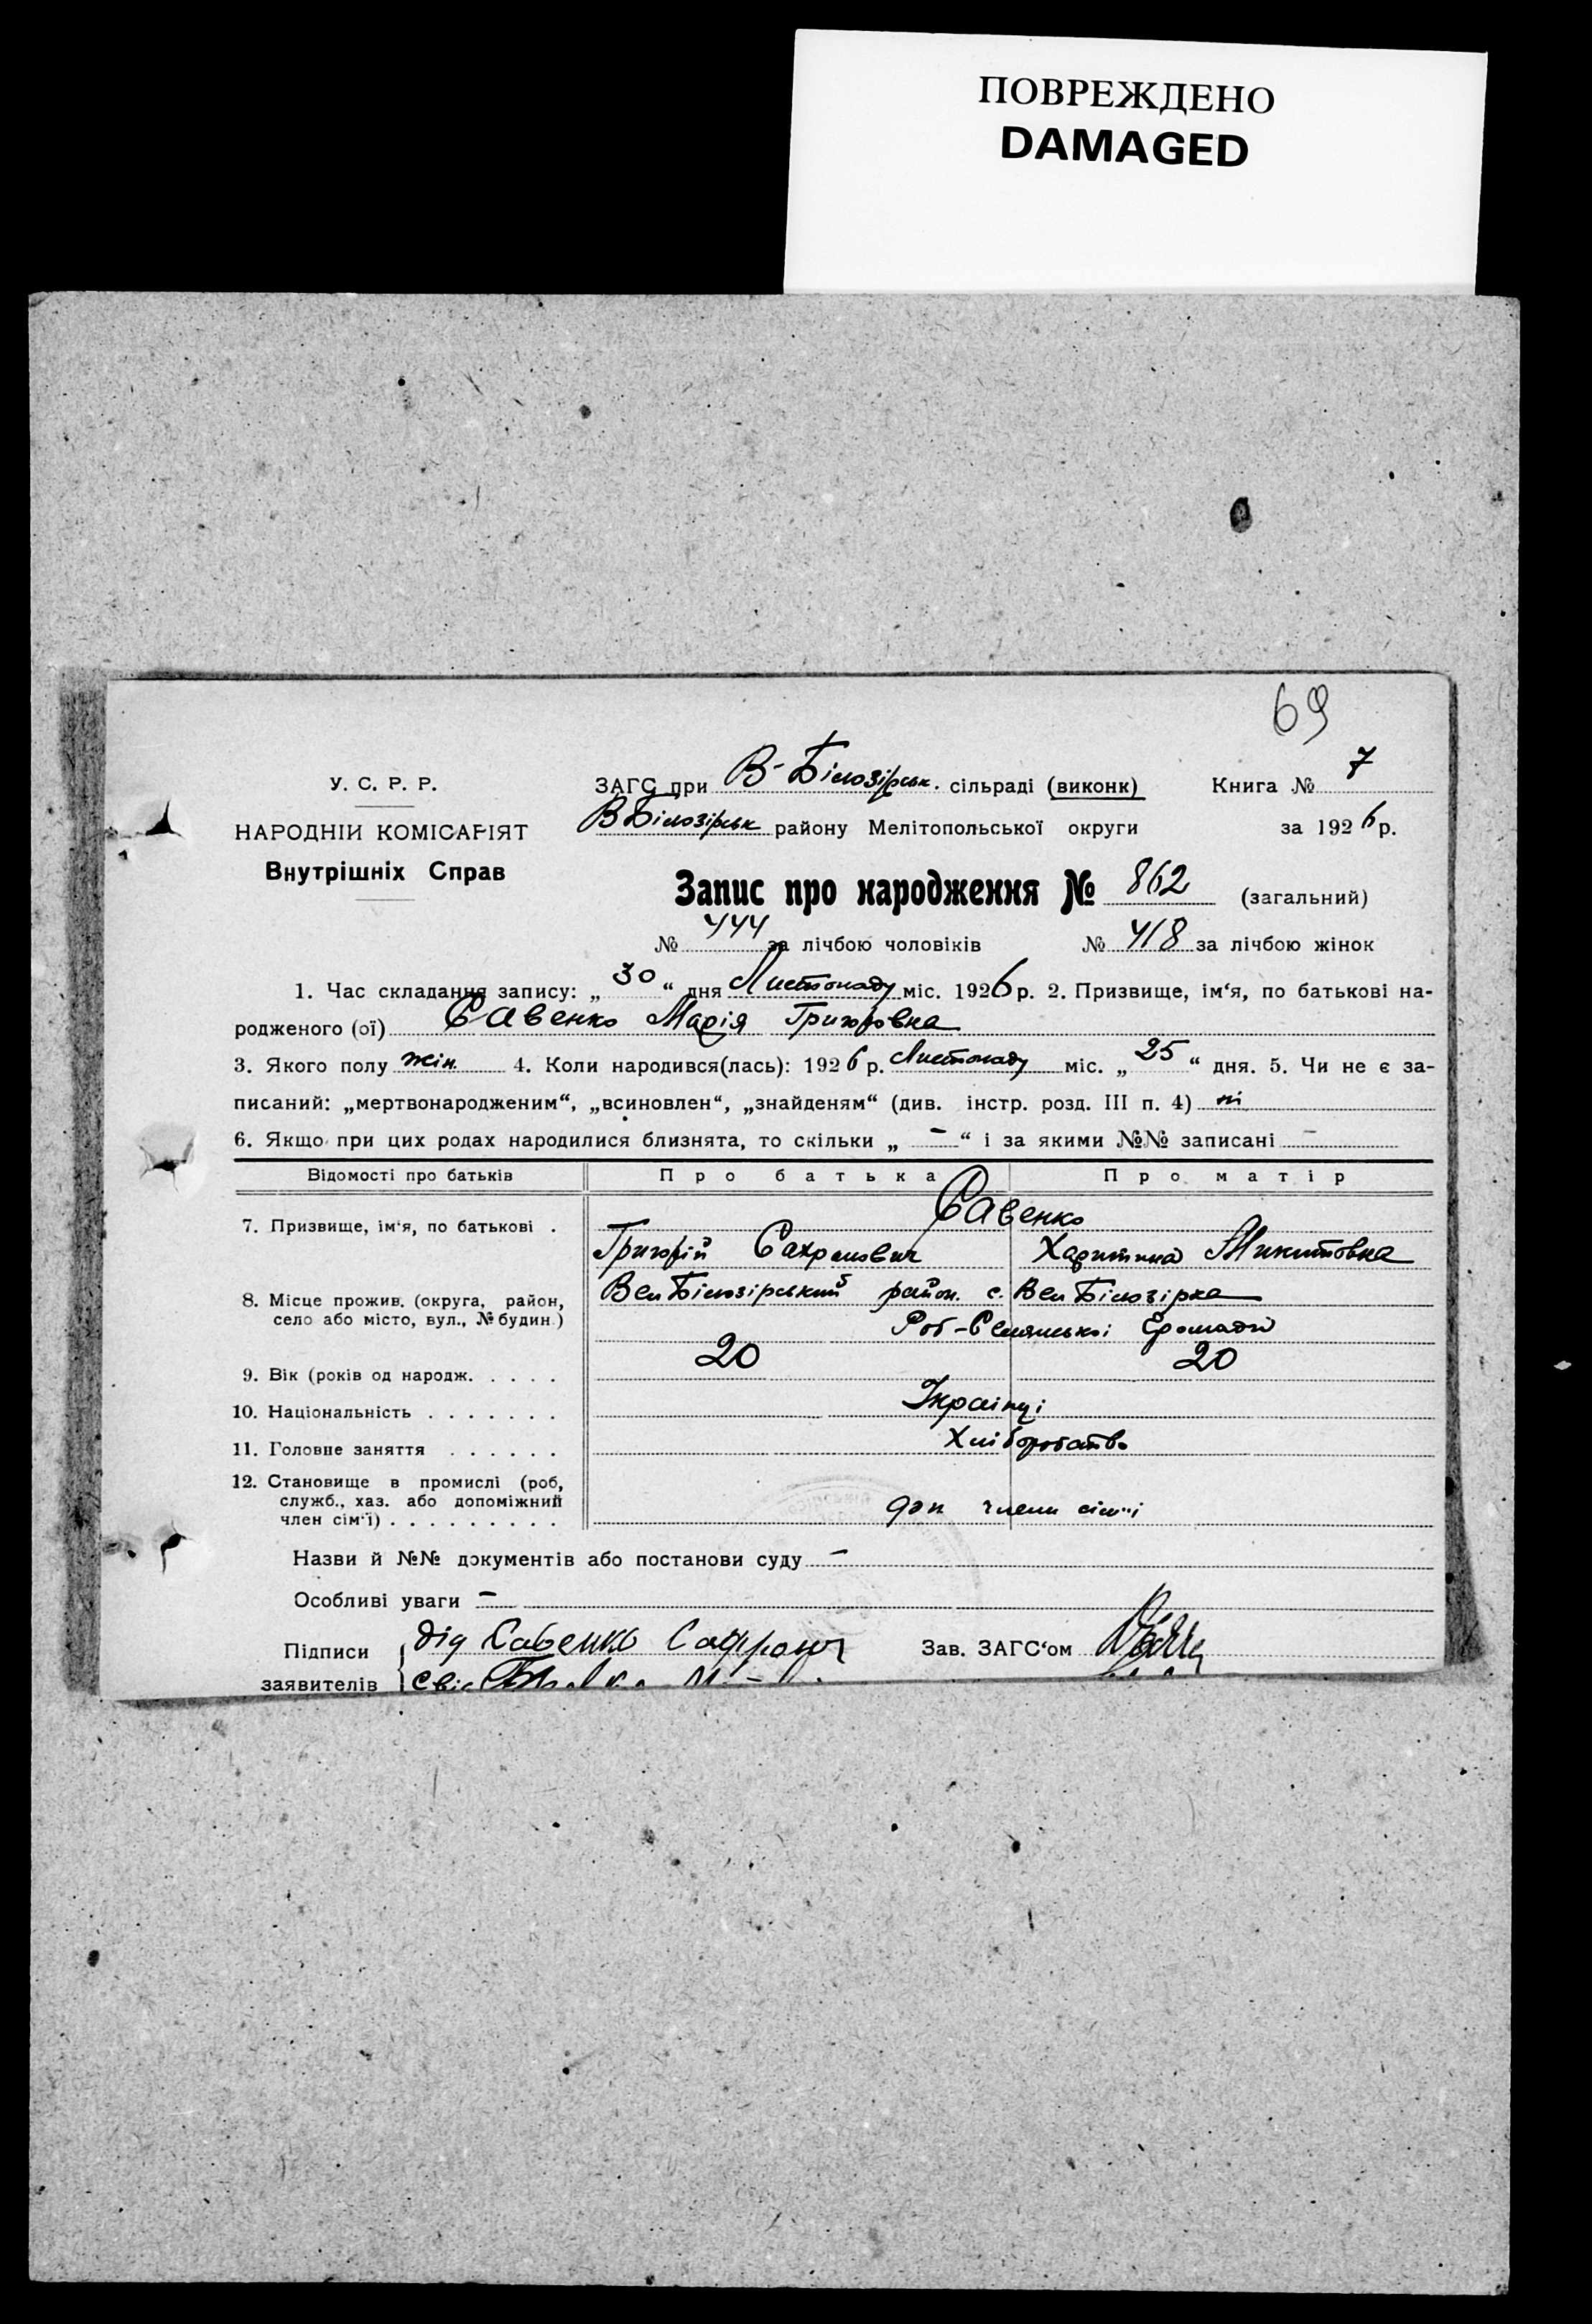 ПОВРЕЖДЕНО
DAMAGED
69
У. С. Р. Р.
НАРОДНІЙ КОМІСАРІЯТ
Внутрішніх Справ
ЗАГС при В-Білозірськ. сільраді (виконк) Книга № 7
ВБілозірськ району Мелітопольської округи за 1926 р.
Запис про народження № 862 (загальний)
№ 444 за лічбою чоловіків № 418 за лічбою жінок
1. Час складання запису: „30“ дня Листопаду міс. 1926 р. 2. Призвище, ім‘я, по батькові на-
родженого (ої) Савенко Марія Григоровна
3. Якого полу жін. 4. Коли народився(лась): 1926 р. Листопаду міс. „25“ дня. 5. Чи не є за-
писаний: „мертвонародженим“, „всиновлен“, „знайденям“ (див. інстр. розд. III п. 4) ні
6. Якщо при цих родах народилися близнята, то скільки „ – “ і за якими №№ записані –
Відомості про батьків Про батька Про матір
7. Призвище, ім‘я, по батькові . Савенко
Григорій Харитина Микитовна
8. Місце прожив. (округа, район,
село або місто, вул., № будин.)
ВелБілозірський район. с. Вел Білозірка
Роб-Селянської Громади
9. Вік (років од народж. . . . . 20 20
10. Національність . . . . . . . Українці
11. Головне заняття . . . . . . Хліборобство
12. Становище в промислі (роб,
служб., хаз. або допоміжний
член сім‘ї) . . . . . . . . . доп члени сім'ї
Назви й №№ документів або постанови суду –
Особливі уваги –
Підписи дід Савенко Зав. ЗАГС‘ом
заявителів